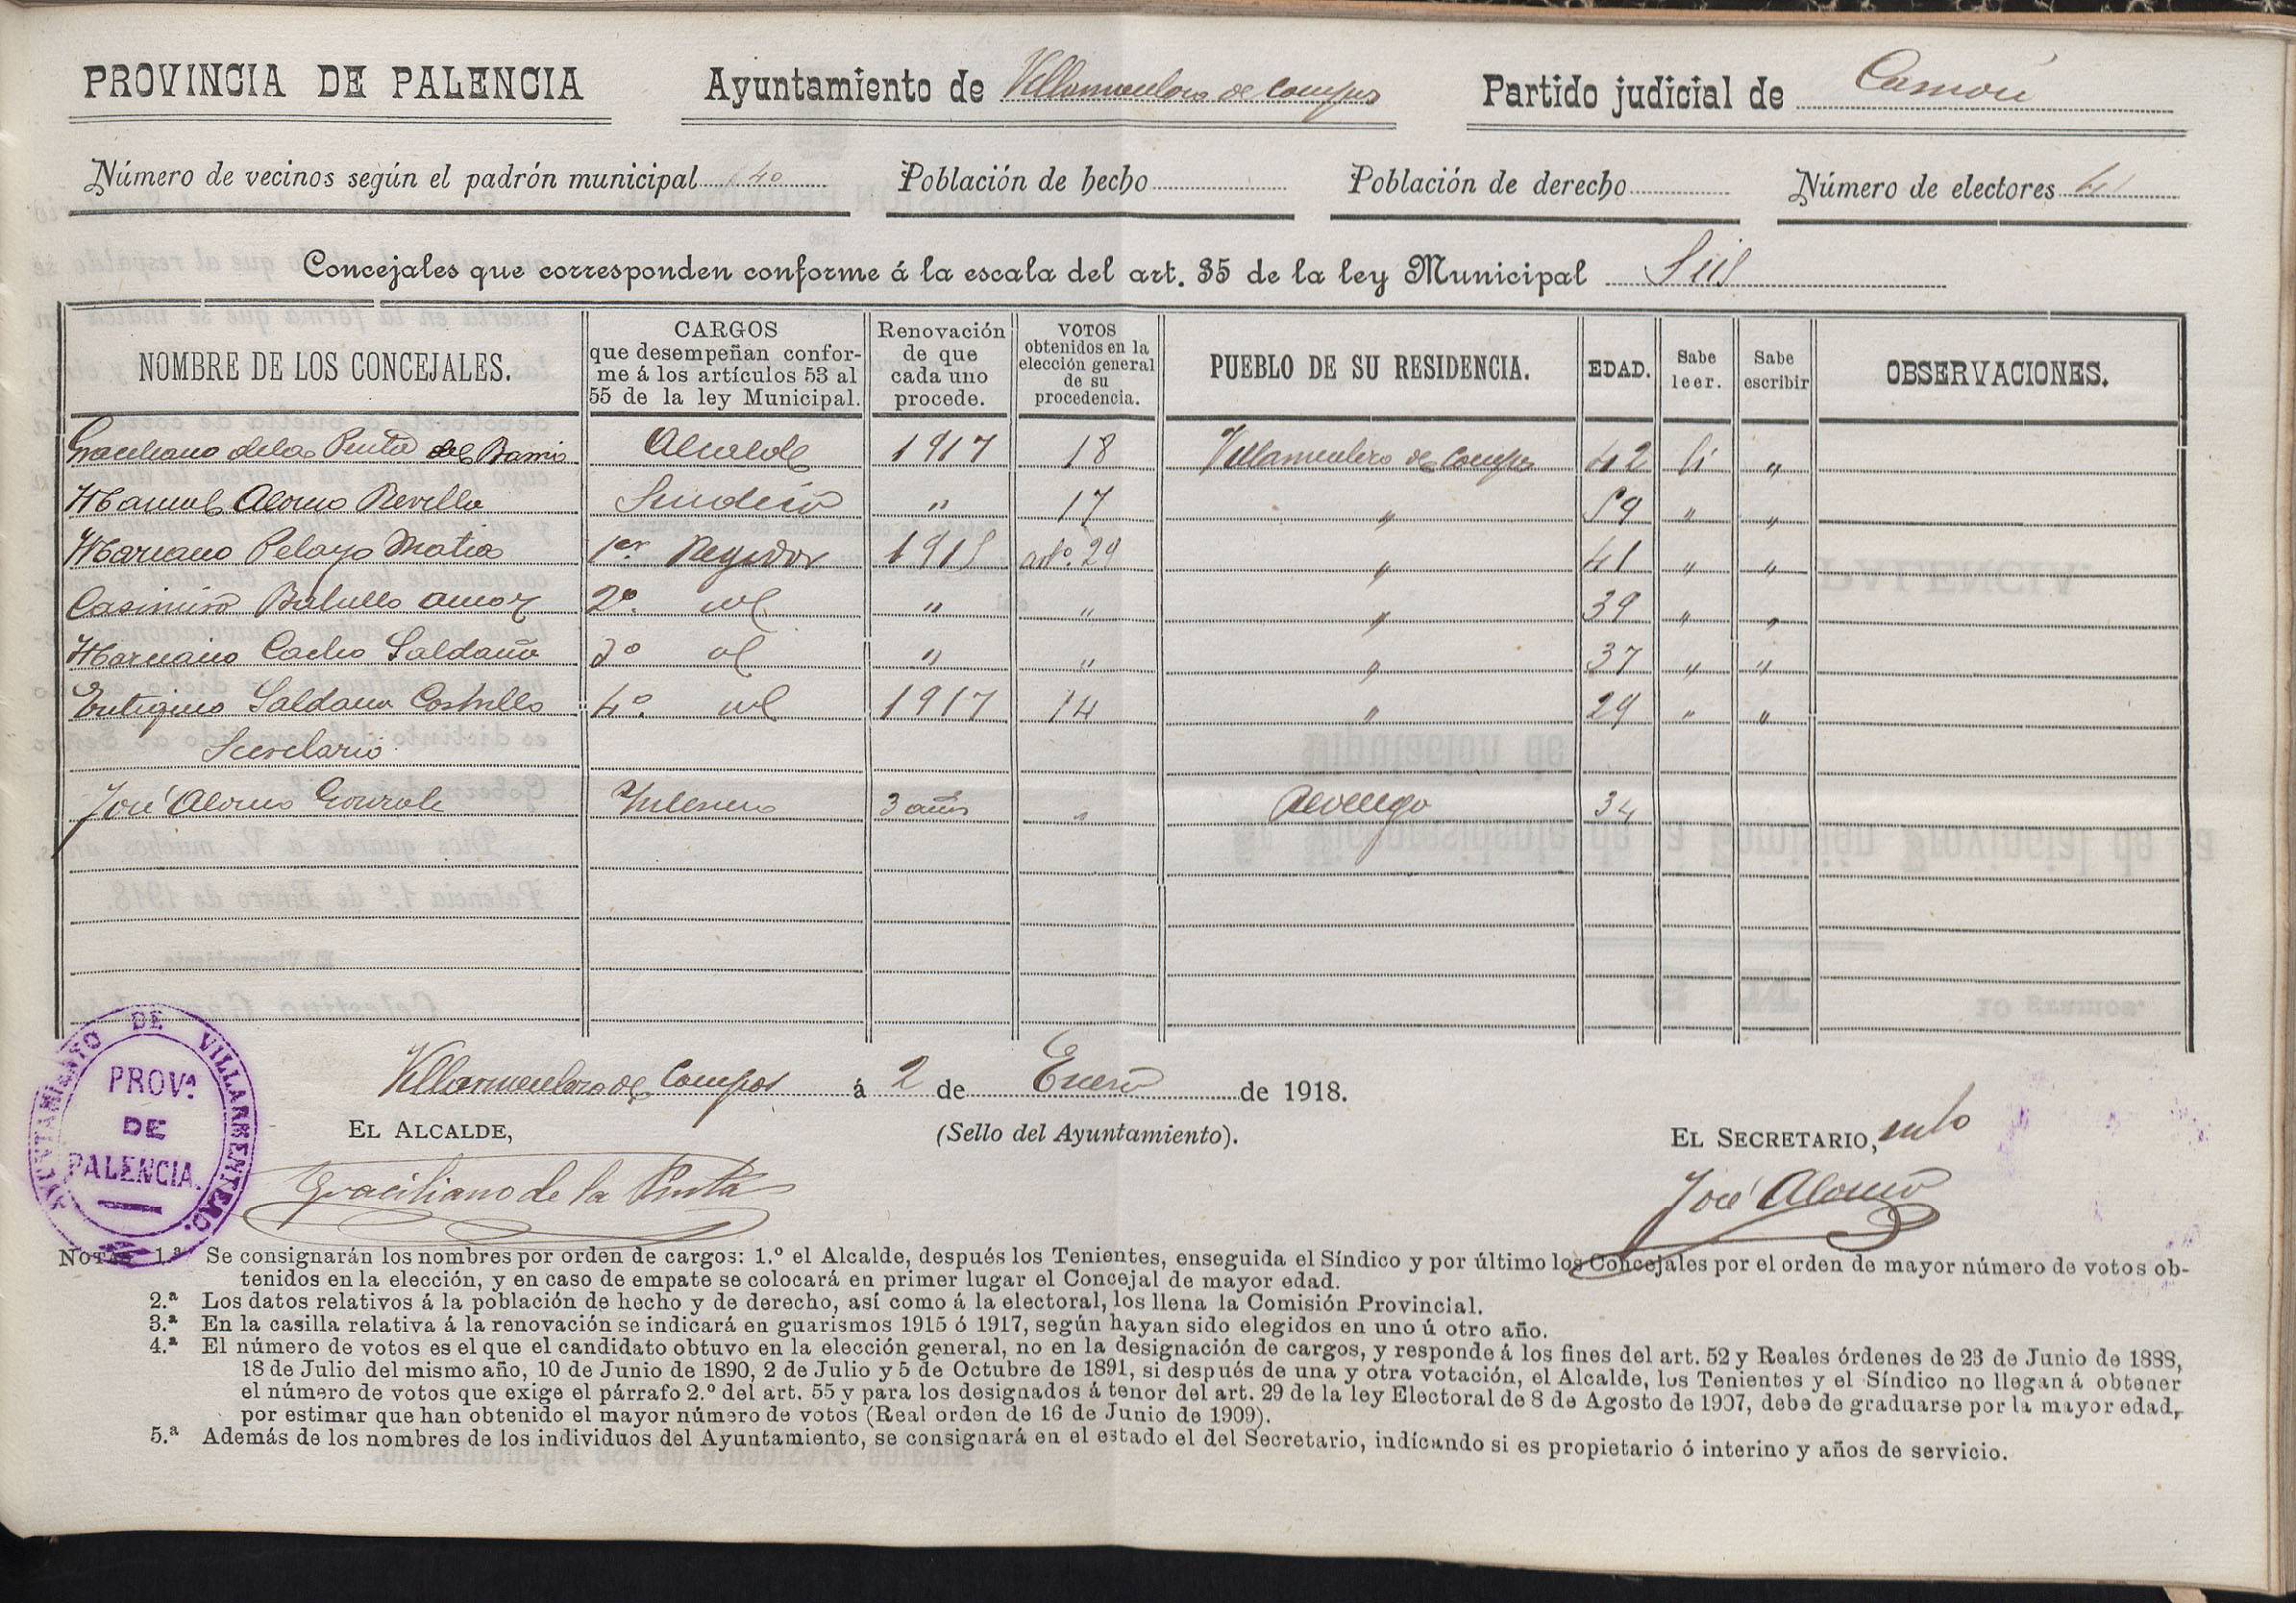 PROVINCIA DE PALENCIA Ayuntamiento de Villarmentero de Campos Partido judicial de Carrión
Número de vecinos según el padrón municipal 40 Población de hecho Población de derecho Número de electores 41
Concejales que corresponden conforme á la escala del art. 35 de la ley Municipal Seis
NOMBRE DE LOS CONCEJALES. CARGOS que desempeñan conforme á los artículos 53 al 55 de la ley Municipal. Renovación de que cada uno procede. VOTOS obtenidos en la elección general de su procedencia. PUEBLO DE SU RESIDENCIA. EDAD. Sabe leer. Sabe escribir OBSERVACIONES.
Graciliano de la Pinta del Barrio Alcalde 1917 18 Villarmentero de Campos 42 Si "
Manuel Alonso Revilla Sindico " 17 " 59 " "
Mariano Pelayo Matia 1er Regidor 1915 artº. 29 " 41 " "
Casimiro Amor 2º. id " " " 39 " "
Mariano Cacho Saldaña 3º id " " " 37 " "
Eutiquio Saldaña Castrillo 4º. id 1917 14 " 29 " "
Secretario
José Alonso Gonzalez Interino 3 años " Revenga 34
Villarmentero de Campos á 2 de Enero de 1918.
EL ALCALDE, (Sello del Ayuntamiento). EL SECRETARIO, into
Graciliano de la Pinta José Alonso
AYUNTAMIENTO DE VILLARMENTERO.
PROVª.
DE
PALENCIA.
NOTAS 1.ª Se consignarán los nombres por orden de cargos: 1.º el Alcalde, después los Tenientes, enseguida el Síndico y por último los Concejales por el orden de mayor número de votos ob-
tenidos en la elección, y en caso de empate se colocará en primer lugar el Concejal de mayor edad.
2.ª Los datos relativos á la población de hecho y de derecho, así como á la electoral, los llena la Comisión Provincial.
3.ª En la casilla relativa á la renovación se indicará en guarismos 1915 ó 1917, según hayan sido elegidos en uno ú otro año.
4.ª El número de votos es el que el candidato obtuvo en la elección general, no en la designación de cargos, y responde á los fines del art. 52 y Reales órdenes de 23 de Junio de 1888,
18 de Julio del mismo año, 10 de Junio de 1890, 2 de Julio y 5 de Octubre de 1891, si después de una y otra votación, el Alcalde, los Tenientes y el Síndico no llegan á obtener
el número de votos que exige el párrafo 2.º del art. 55 y para los designados á tenor del art. 29 de la ley Electoral de 8 de Agosto de 1907, debe de graduarse por la mayor edad,
por estimar que han obtenido el mayor número de votos (Real orden de 16 de Junio de 1909).
5.ª Además de los nombres de los individuos del Ayuntamiento, se consignará en el estado el del Secretario, indicando si es propietario ó interino y años de servicio.